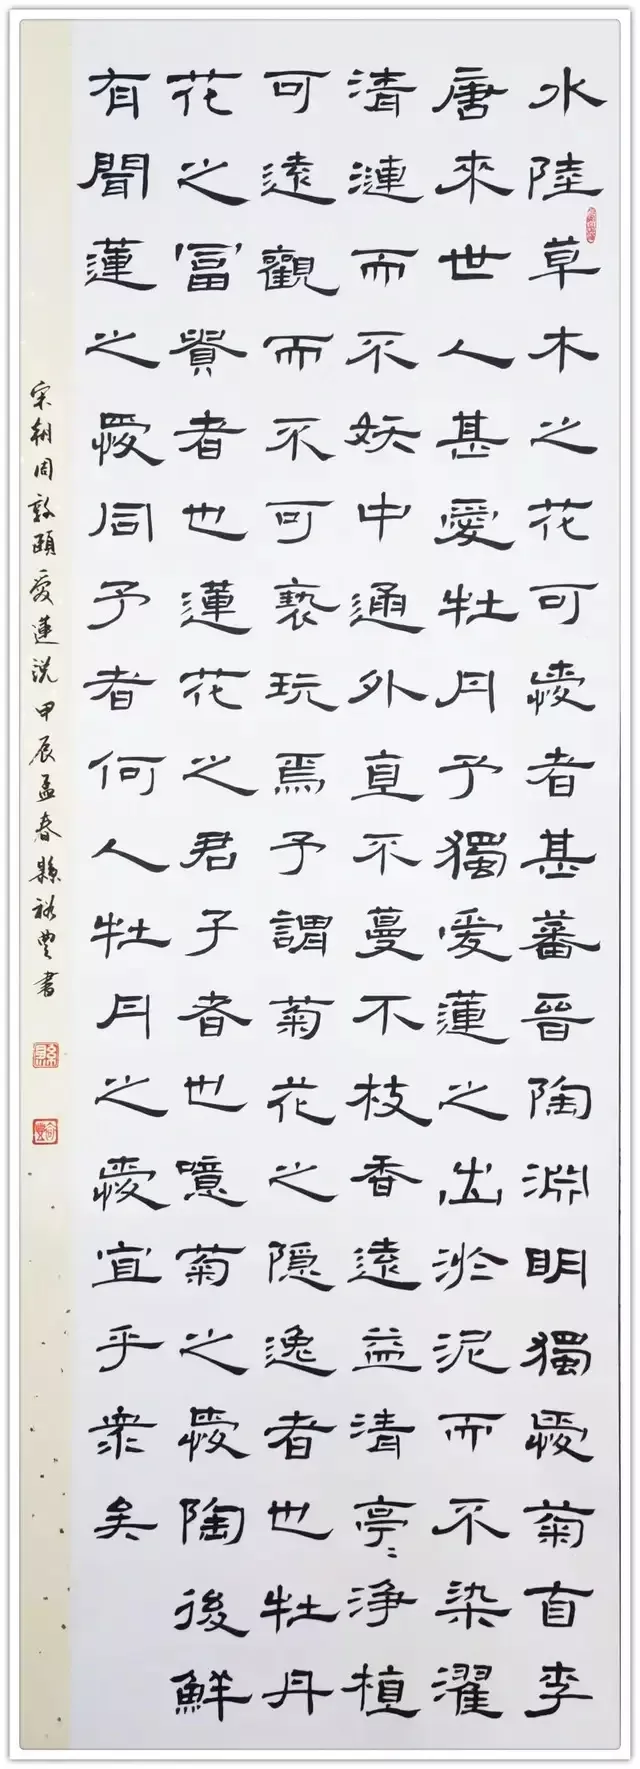 水陸草木之花可愛者甚蕃晉陶淵明獨愛菊自李
唐來世人甚愛牡丹予獨愛蓮之出淤泥而不染濯
清漣而不妖中通外直不蔓不枝香遠益清亭〻淨植
可遠觀而不可褻玩焉予謂菊花之隱逸者也牡丹
花之富貴者也蓮花之君子者也噫菊之愛陶後鮮
有聞蓮之愛同予者何人牡丹之愛宜乎衆矣
宋朝周敦頤愛蓮説甲辰孟春縣裕豐書